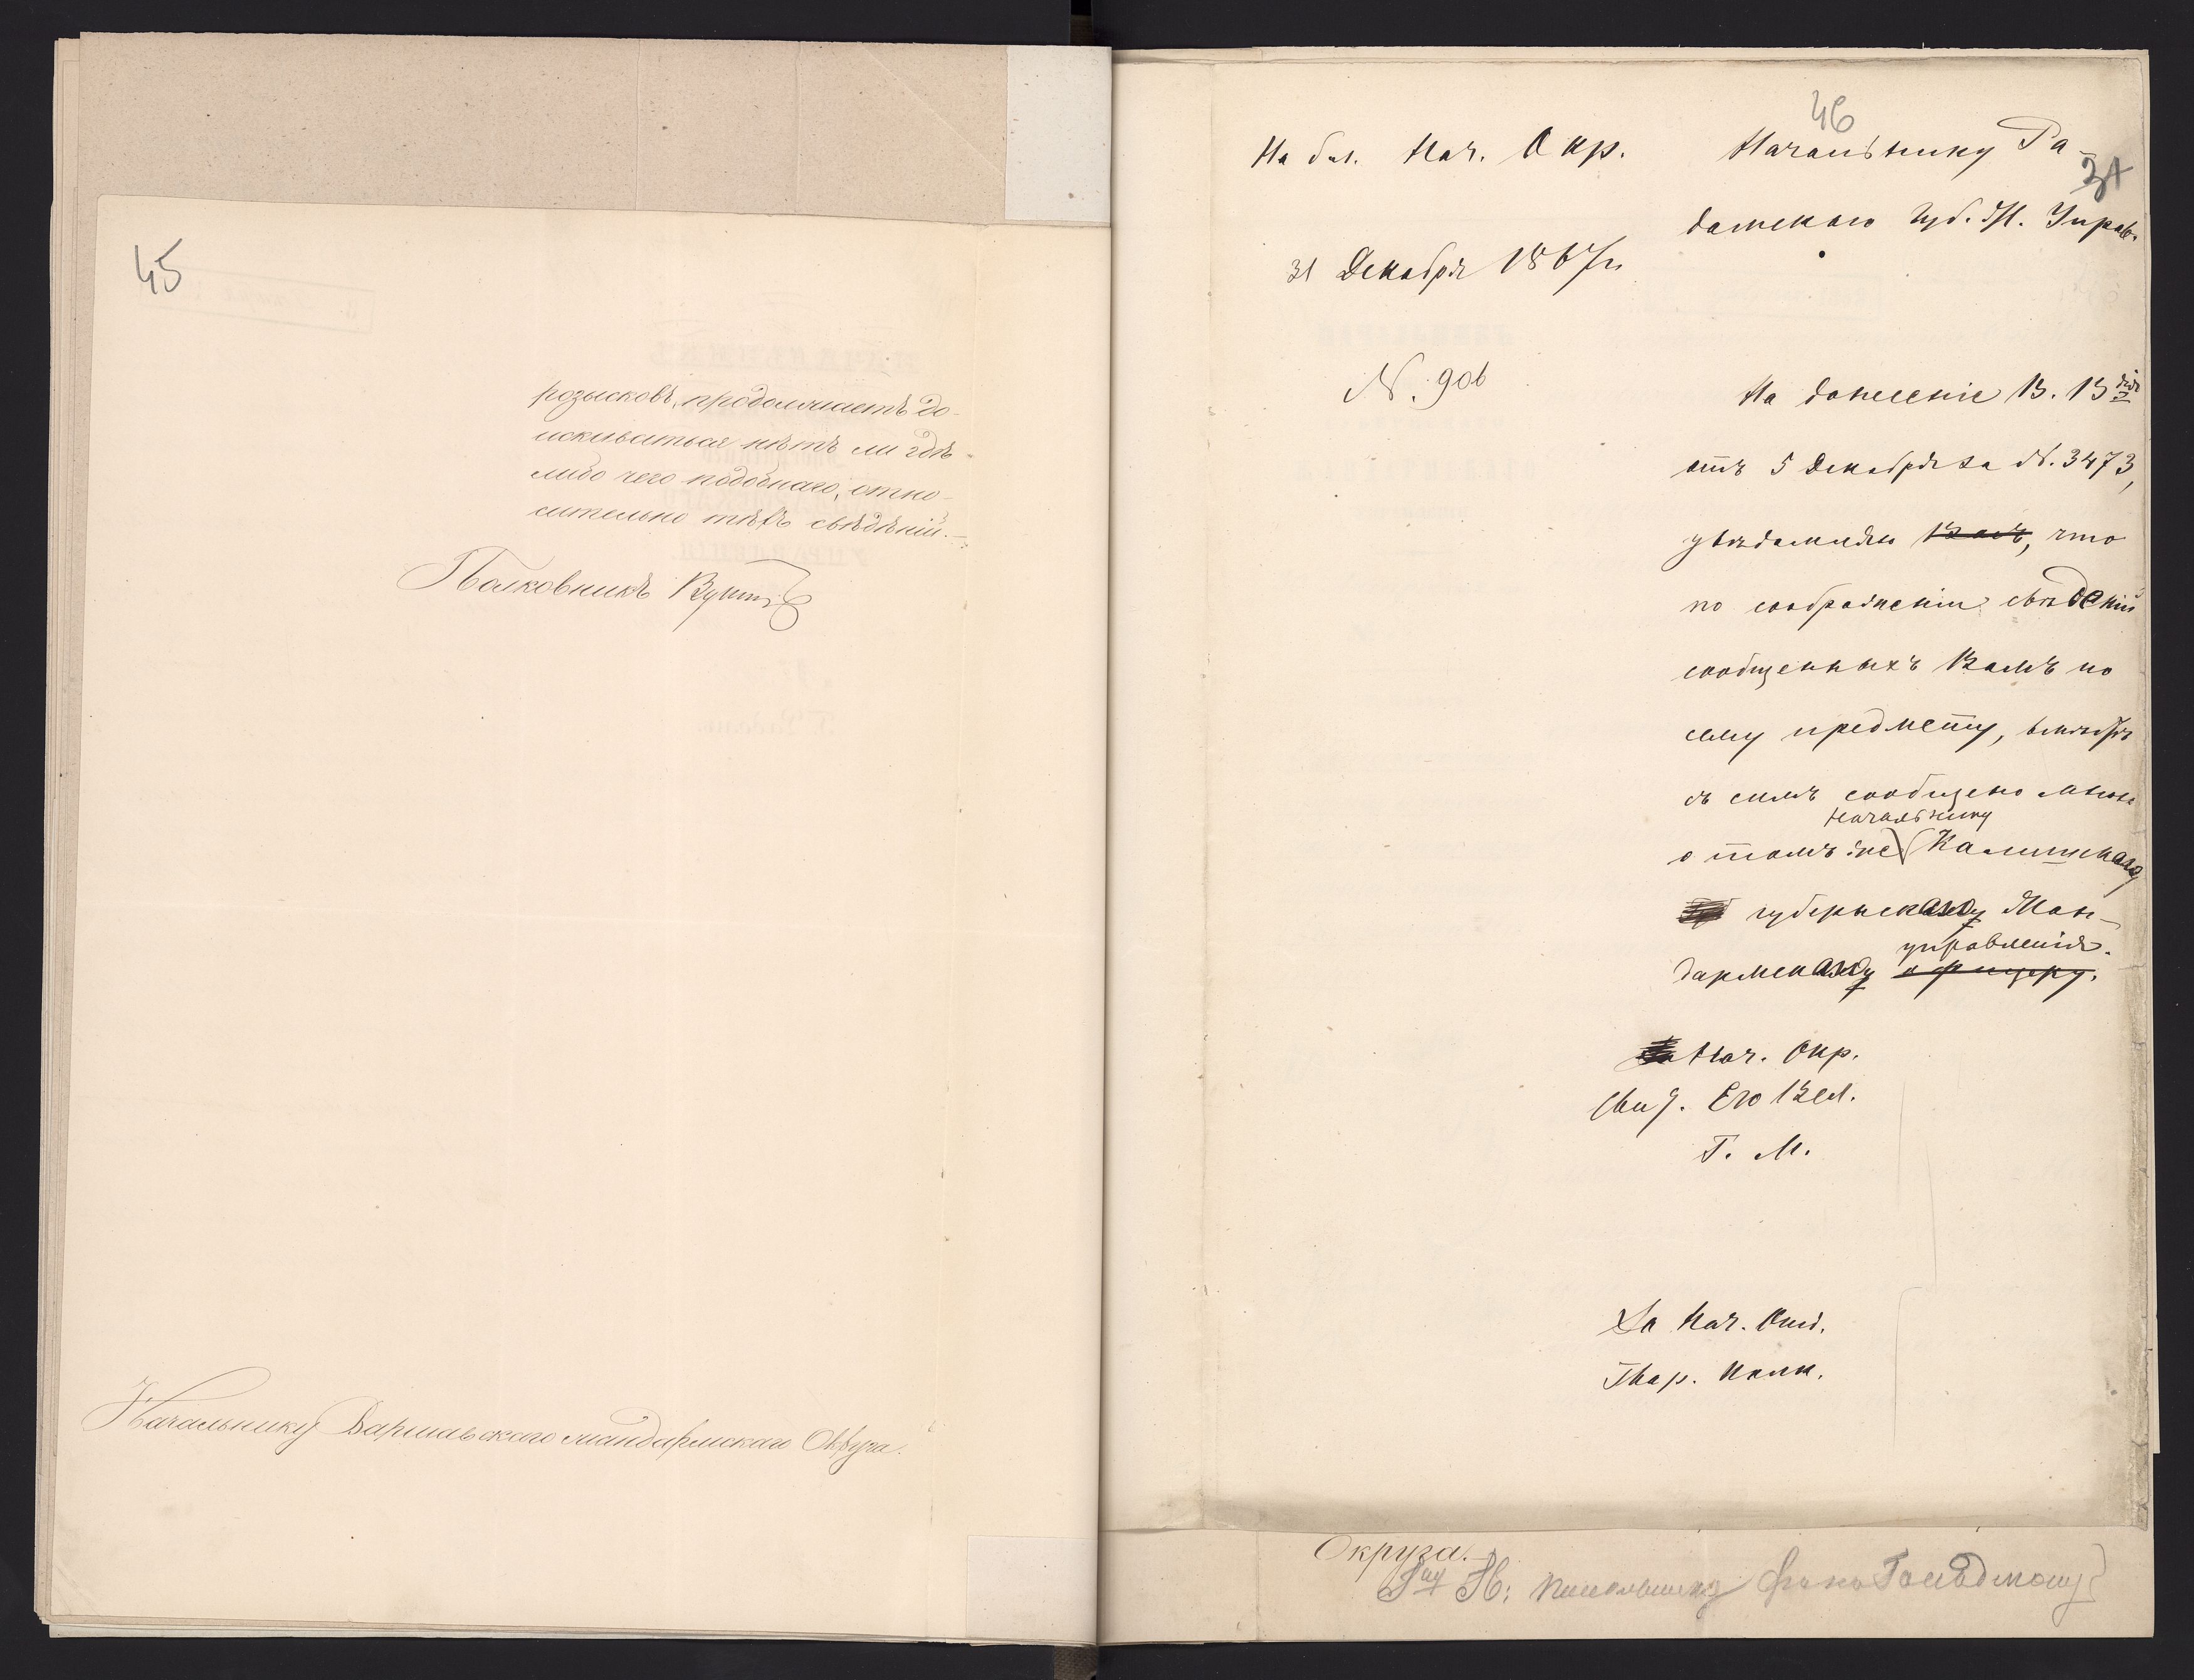 45
розысковъ, продолжаетъ до-
искиваться нѣтъ ли гдѣ-
либо чего подобнаго, отно-
сительно тѣхъ свѣдѣній.—
Полковникъ
Начальнику Варшавскаго жандармскаго Округа.
46
31
На бл. Нач. Окр.
31 Декабря 1867 г.
N. 906
Начальнику Ра-
домскаго Губ. Ж. Управ.
На донесеніе В. В.
отъ 5 Декабря за N. 3473,
увѣдомляю Васъ, что
по соображеніи свѣдѣній
сообщенныхъ Вамъ по
сему предмету, вмѣстѣ
съ симъ сообщено мною
начальнику
о томъ же Калишскаго
губернскаго Жан-
управленія.
дармскаго офицеру.
Нач. Окр.
Свиты Его Вел.
Г. М.
За Нач. Отд.
Гвар. Полк.
Округа.